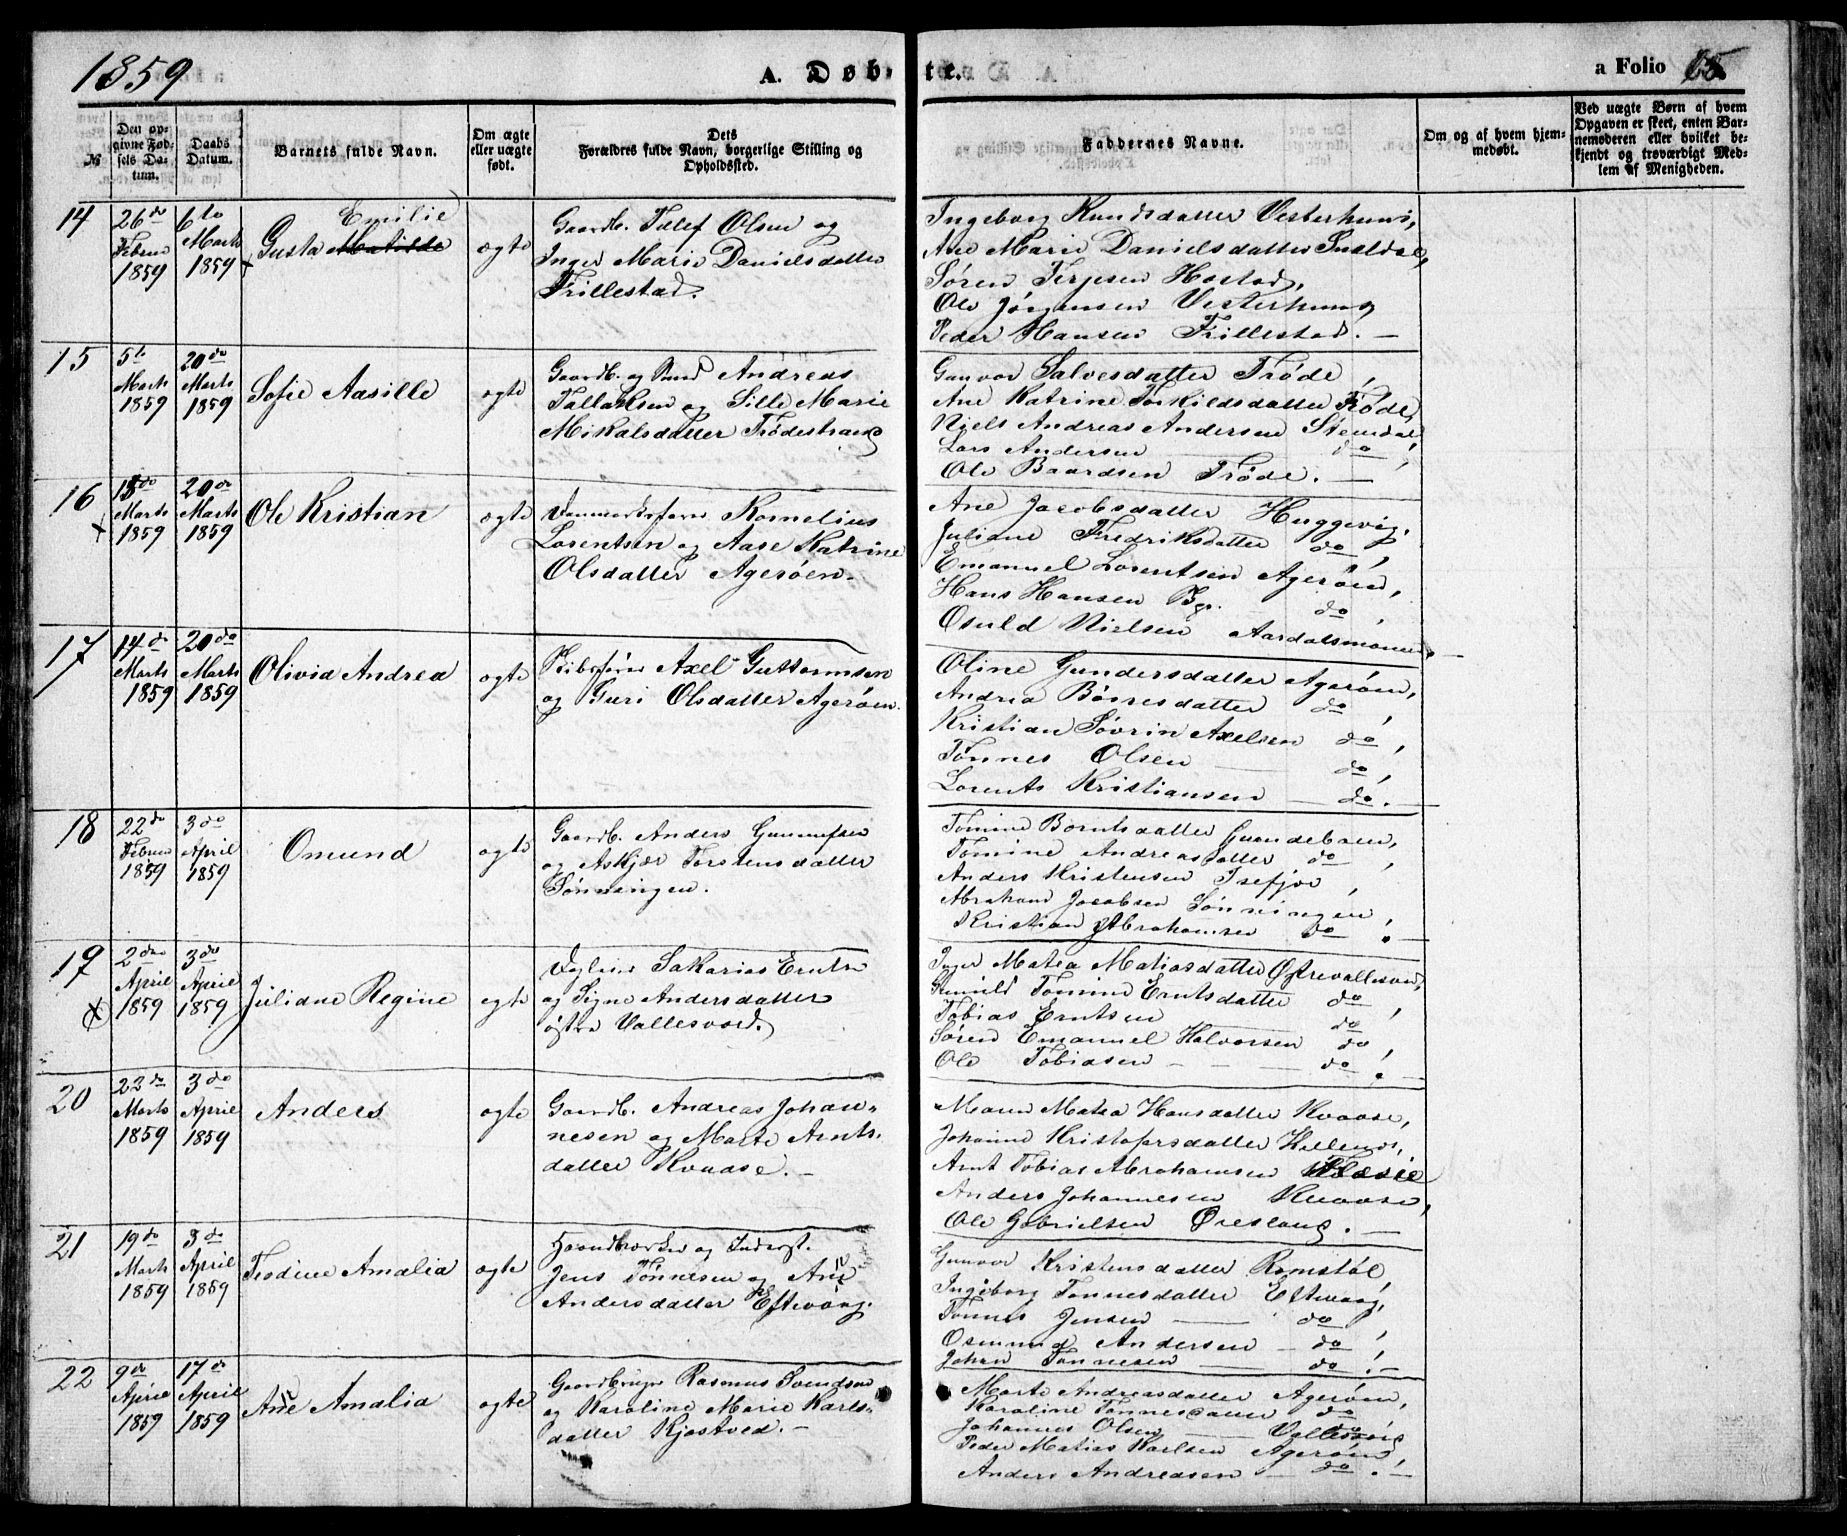 1859
A. Døb-
te.
a Folio
№
Den op-
givne Fød-
sels Da-
tum.
Daabs
Datum.
Barnets fulde Navn.
Om ægte
eller uægte
født.
Dets
Forældres fulde Navn, borgerlige Stilling og
Opholdssted.
Faddernes Navne.
Om og af hvem hjem-
medøbt.
Ved uægte Børn af hvem
Opgaven er skeet, enten Bar-
nemoderen eller hvilket be-
kjendt og troværdigt Med-
lem af Menigheden.
14
26de
Februar
1859
6te
Marts
1859
Emilie
Gusta Matilde
ægte
Gaardb. Tallef Olsen og
Inger Marie Danielsdatter
Trillestad.
Ingeborg Knudsdatter Vesterhuus,
Ane Marie Danielsdatter
Søren Terjesen Hostad,
Ole Jørgensen Vesterhuus
Peder Hansen Trillestad. —
15
5te
Marts
1859
20de
Marts
1859
Sofie Aasille
ægte
Gaardb. og Andreas
Tallaksen og Sille Marie
Mikalsdatter Trødestrand
Gunvor Salvesdatter Trøde,
Ane Katrine Torkildsdatter Trøde,
Niels Andreas Andersen Stendal
Lars Andersen do,
Ole Baardsen Trøde. —
16
Marts
1859
20de
Marts
1859
Ole Kristian
ægte
Kornelius
Lorentsen og Aase Katrine
Olsdatter Agerøen.
Ane Jacobsdatter Huggevig,
Juliane Fredriksdatter do,
Emanuel Lorentsen Agerøen,
Hans Hansen do,
Osuld Nielsen
17
14de
Marts
1859
20de
Marts
1859
Olivia Andrea
ægte
Skibsfører Axel Guttormsen
og Guri Olsdatter Agerøen.
Oline Gundersdatter Agerøen,
Andrea Børresdatter do,
Kristian Søvrin Axelsen do,
Tønnes Olsen — do,
Lorents Kristiansen — do. —
18
22de
Februar
1859
3de
April
1859
Omund
ægte
Gaardb. Anders Gunnufsen
og Askjær Torstensdatter
Sønningen.
Tomine Borntsdatter
Tomine Andreasdatter do,
Anders Kristensen Isefjær,
Abraham Jacobsen Sønningen,
Kristian Abrahamsen do. —
19
2den
April
1859
3de
April
1859
Juliane Regine
ægte
Sakarias Erntsen
og Signe Andersdatter
østre Vallesværd.
Inger Matea Matiasdatter Østrevallesværd,
Gunild Tomine Erntsdatter do,
Tobias Erntsen do
Søren Emanuel Halvorsen do,
Ole Tobiasen — — do. —
20
22de
Marts
1859
3de
April
1859
Anders
ægte
Gaardb. Andreas Johan-
nesen og Marte Arnts-
datter Kvaase. —
Maren Matea Hansdatter Kvaase,
Johanne Kristofersdatter
Arnt Tobias Abrahamsen
Anders Johannesen Kvaase,
Ole Gabrielsen Øresland. —
21
19de
Marts
1859
3de
April
1859
Teodine Amalia
ægte
Haandværker og Inderst.
Jens Tønnesen og Ane
Andersdatter Eftevaag.
Gunvor Kristensdatter Ramstøl
Ingeborg Tønnesdatter Eftevaag,
Tønnes Jensen — do,
Osmund Andersen — do,
Johan Tønnesen — do. —
22
9de
April
1859
17de
April
1859
Ane Amalia
ægte
Gaardbruger Rasmus Svendsen
og Karoline Marie Karls-
datter Kjøstved. —
Marte Andreasdatter Agerøen,
Karoline Tønnesdatter do
Johannes Olsen — Vallesværd
Peder Matias Karlsen Agerøen,
Anders Andreasen — do. —